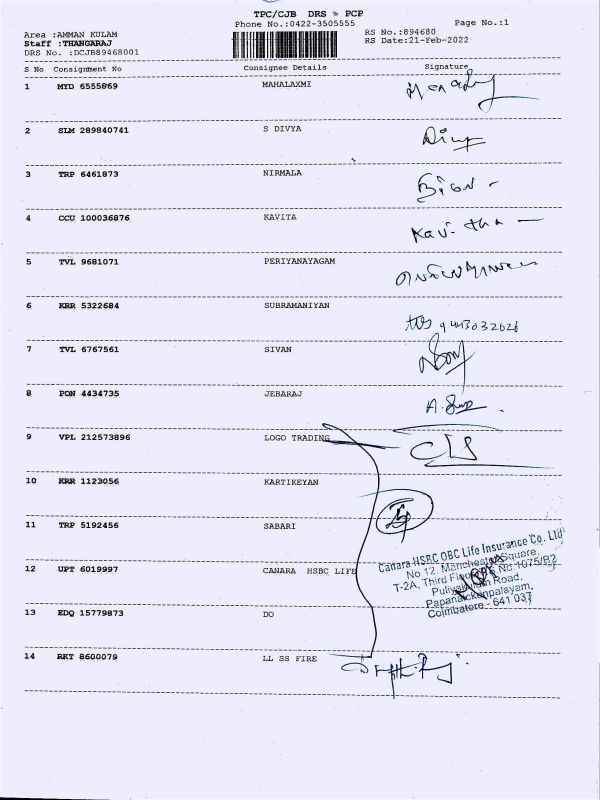 TPC/CJB DRS - PCP
Phone No.:0422-3505555 Page No.:1
Area :AMMAN KULAM RS No.:894680
Staff :THANGARAJ RS Date:21-Feb-2022
DRS No. :DCJB89468001
S No Consignment No Consignee Details Signature
1 MYD 6555869 MAHALAXMI
2 SLM 289840741 S DIVYA
3 TRP 6461873 NIRMALA
4 CCU 100036876 KAVITA Kavi-tha
5 TVL 9681071 PERIYANAYAGAM
6 KRR 5322684 SUBRAMANIYAN 9443032026
7 TVL 6767561 SIVAN
8 PON 4434735 JEBARAJ
9 VPL 212573896 LOGO TRADING
10 KRR 1123056 KARTIKEYAN
11 TRP 5192456 SABARI
12 UPT 6019997 CANARA HSBC LIFE
Canara HSBC OBC Life Insurance Co. Ltd
No 12, Manchester Square,
T-2A, Third Floor, No.1075/B2
Puliyakulam Road,
Papanaickenpalayam,
Coimbatore - 641 037
13 EDQ 15779873 DO
14 RKT 8600079 LL SS FIRE